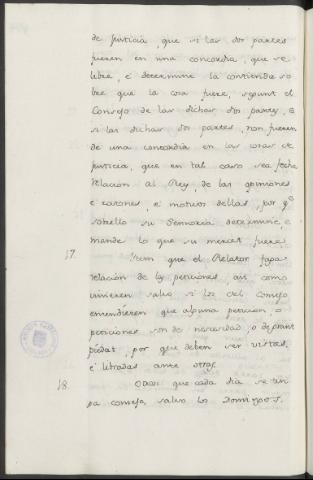 de Justicia, que si las dos partes
fueren en una concordia, que se
libre, e determine la contienda so
bre que la cosa fuere, segunt el
Consejo de las dichas dos partes, e
si las dichas dos partes, non fueren
de una concordia en las cosas de
Justicia, que en tal caso sea fecha
relacion al Rey, de las opiniones
e razones, e motivos dellas, por qe
sobrello su Señoria determine, e
mande lo que su merced fuere.
17. Item que el Relator faga
relacion de las peticiones, asi como
vinieren salvo si los del Consejo
entendieren que alguna peticion, o
peticiones son de necesidad, o de grant
piedat, por que deben ser vistas,
e libradas ante otras.
18. Otrosi que cada dia se ten
ga consejo, salvo los Domingos.